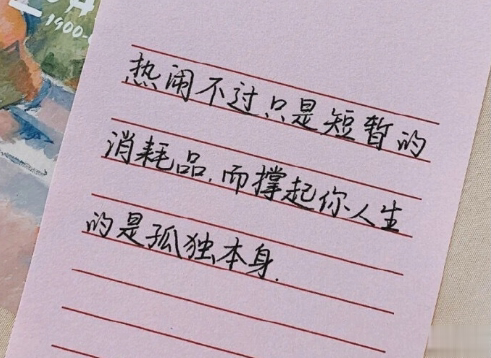 1900-
热闹不过只是短暂的
消耗品.而撑起你人生
的是孤独本身.